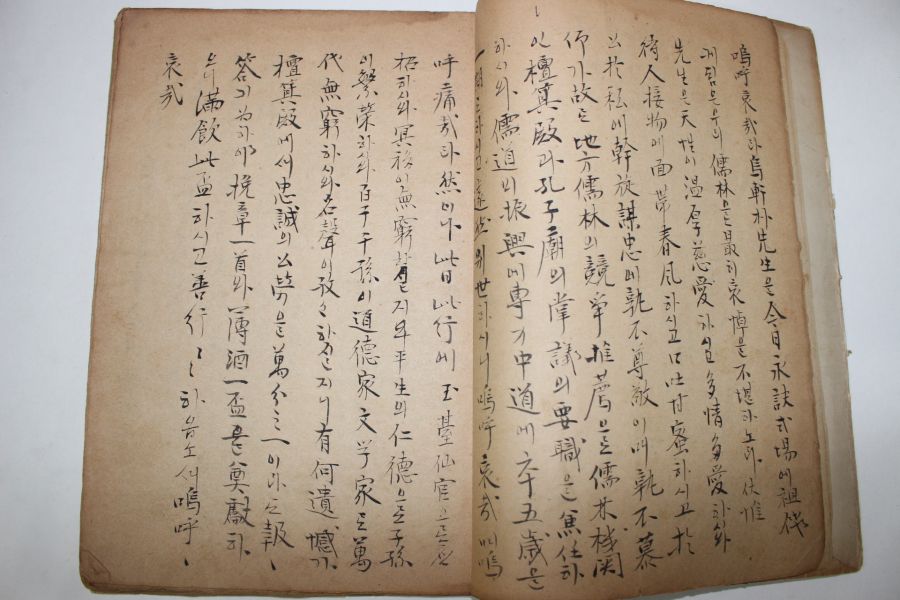 嗚呼哀哉라 烏軒朴先生은 今日永訣式場에 祖餞
게됨은 우리 儒林은 最히 哀悼을 不堪하노라 伏惟
先生은 天性이 溫厚慈愛하실 多情多愛하와
待人接物에 面帶春風하시고 口吐甘蜜하시고 於
公於私에 幹旋謀忠에 孰不尊敬이며 孰不慕
仰가 故로 地方儒林의 競爭推薦으로 儒林機関
인 檀箕殿과 孔子廟의 掌議의 要職을 兼任하
하시와 儒道의 振興에 專力中 道에 享年五歲을
하시니 嗚呼哀哉 嗚
呼痛哉라 然이나 此日此行에 玉臺仙官으로
하시와 冥福이 無窮하실지와 平生의 仁德으로 子孫
이 繁榮하시와 百子千孫이 道德家文学家로 萬
代無窮하시와 名聲이 하실지니 有何遺憾가
檀箕殿에서 忠誠의 公勞을 萬分之一이라도 報
答기 为하야 挽章一首와 薄酒一盃로 奠獻하
오니 滿飮此盃하시고 善行 하옵소서 嗚呼
哀哉